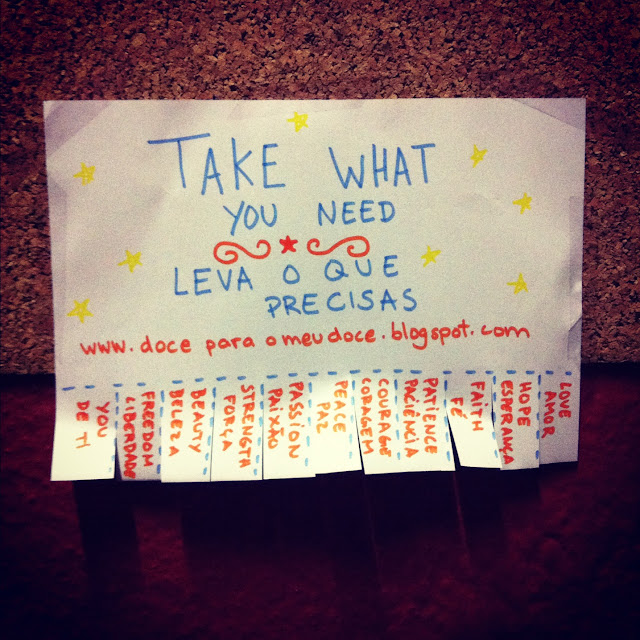 TAKE WHAT
YOU NEED
LEVA O QUE
PRECISAS
www.doceparaomeudoce.blogspot.com
YOU
DE TI
FREEDOM
LIBERDADE
BEAUTY
BELEZA
STRENGTH
FORÇA
PASSION
PAIXÃO
PEACE
PAZ
COURAGE
CORAGEM
PATIENCE
PACIÊNCIA
FAITH
FÉ
HOPE
ESPERANÇA
LOVE
AMOR